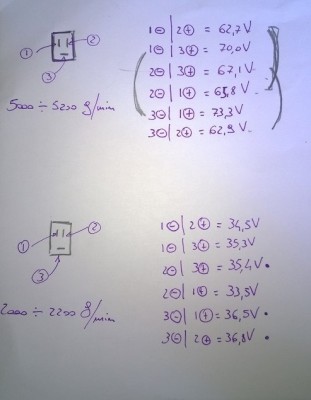 1⊖ | 2⊕ = 62,7V
1⊖ | 3⊕ = 70,0V
① ②
2⊖ | 3⊕ = 67,1V
③
2⊖ | 1⊕ = 65,8V
5000 ÷ 5200 g/min
3⊖ | 1⊕ = 73,3V
3⊖ | 2⊕ = 62,9V
1⊖ | 2⊕ = 34,5V
① ②
1⊖ | 3⊕ = 35,3V
2⊖ | 3⊕ = 35,4V
③
2⊖ | 1⊕ = 33,5V
2000 ÷ 2200 g/min
3⊖ | 1⊕ = 36,5V
3⊖ | 2⊕ = 36,8V